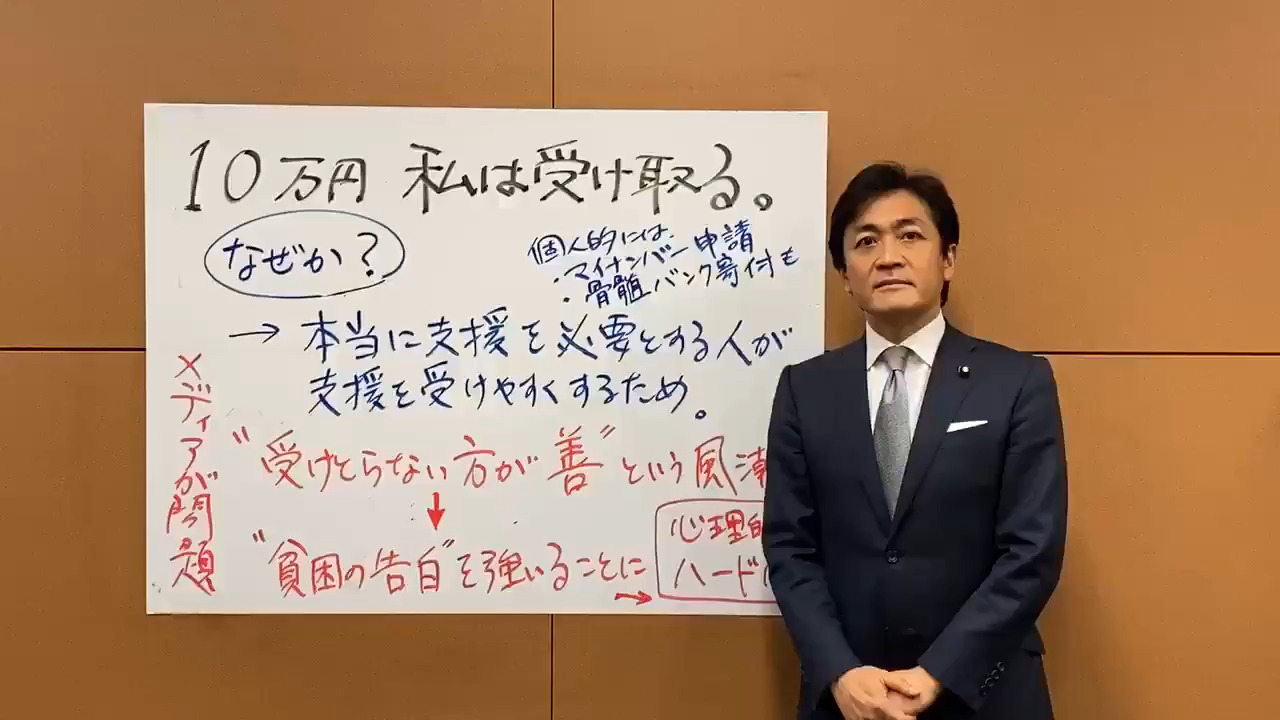 10万円 私は受け取る。
なぜか?
個人的には、
・マイナンバー申請
・骨髄バンク寄付も
→ 本当に支援を必要とする人が
支援を受けやすくするため。
メディアが問題
"受けとらない方が善"という風潮
↓
"貧困の告白"を強いることに
→
心理的
ハード